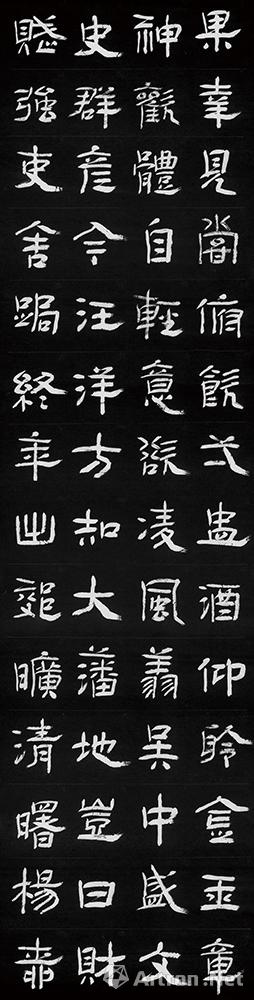 果幸見嘗俯飲弌盃酒仰聆金玉章
神歡體自輕意欲凌風翔吳中盛文
史群彦今汪洋方知大藩地豈曰財
賦強吏舍跼終年出郊曠清曙楊
Artron.Net